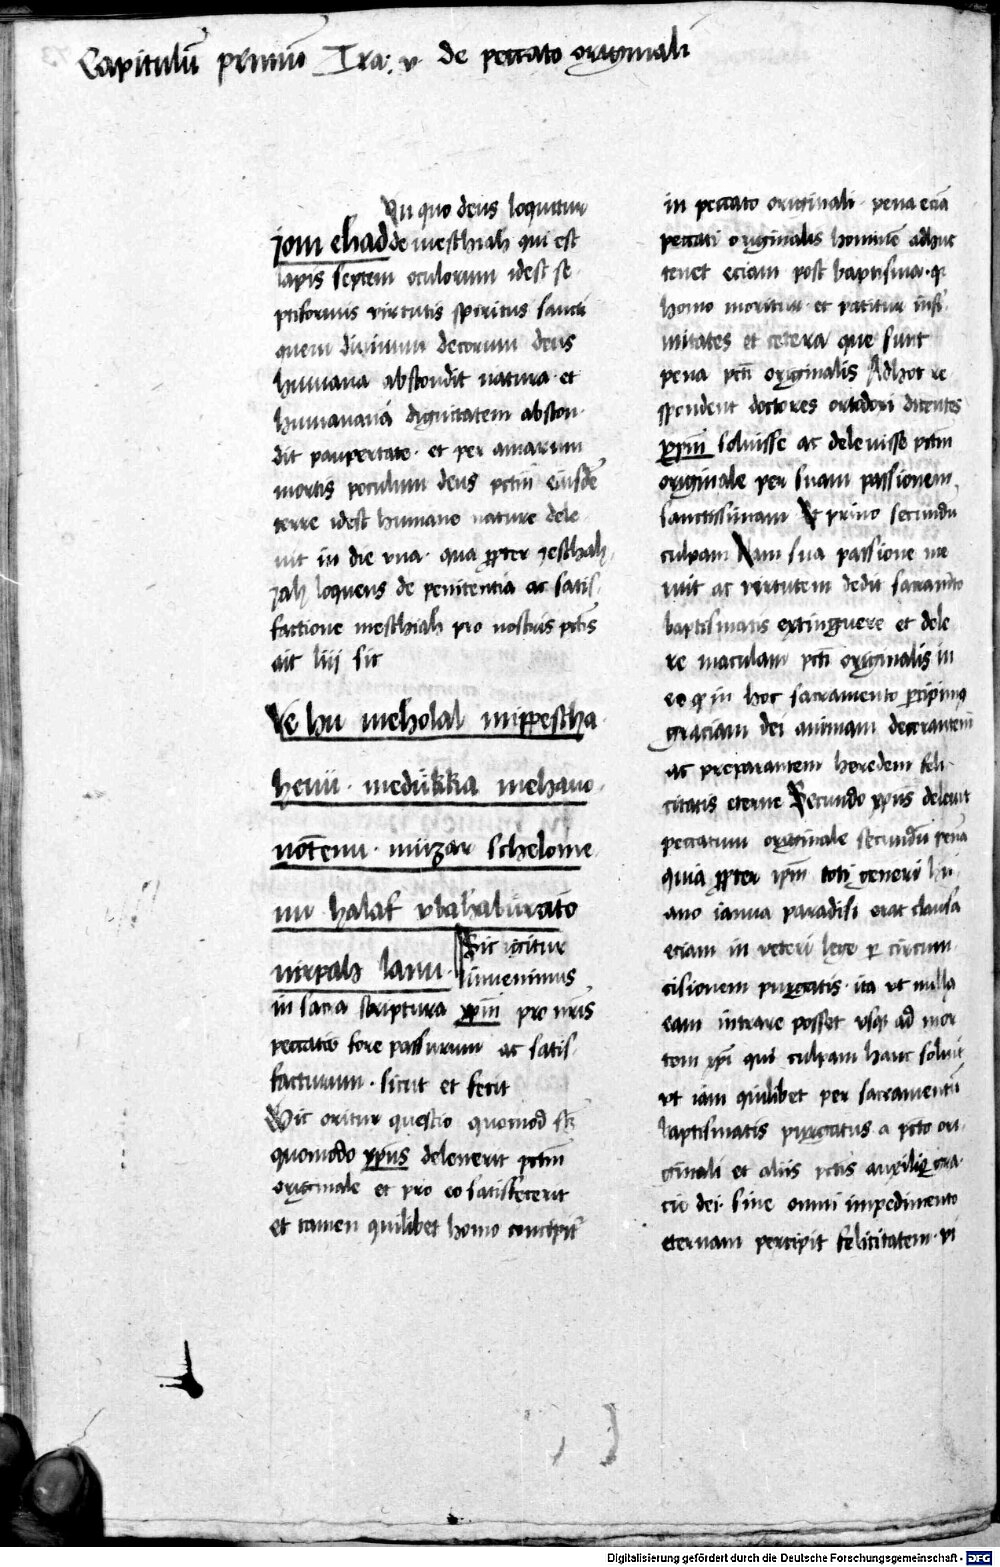 Capitulū primū Tra. v de peccato originali
In quo deus loquitur
jom ehad de meschiah qui est
lapis septem oculorum idest se-
ptiformis virtutis spiritus sancti
quem diuinum decorum deus
humana abscondit natura et
humananá dignitatem abscon-
dit paupertate et per amarum
mortis poculum deus pctm̄ eiusdē
terre idest humane nature dele-
uit in die vna qua ꝓpter jeschah
jah loquens de penitentia ac satis-
factione meschiah pro nostris pctīs
ait liii sic
Ve hu meholal mippescha-
henu medukka mehauo-
notenu muzar schelome-
nu halaf vbahaburato
nirpah lanu Sic igitur
inuenimus
in sacra scriptura xp̄m pro nr̄is
peccatis fore passurum ac satis-
facturum sicut et fecit
Hic oritur questio quomod
quomodo xp̄us deleuerit pctm̄
originale et pro eo satisfecerit
et tamen quilibet homo concipit~
in peccato originali pena eciā
peccati originalis hominē adhuc
tenet eciam post baptisma q~
homo moritur et patitur infir-
mitates et cetera que sunt
pena pctī originalis Adhoc re-
spondent doctores ortodoxi dicentes
xp̄m soluisse ac deleuisse pctm̄
originale per suam passionem
sanctissimam Et primo secundū
culpam Nam sua passione me-
ruit ac vertutem dedit sacramēto
baptismatis extinguere et dele-
re maculam pctī originalis in
eo q~ in hoc sacramento ꝑcipimꝰ
graciam dei animam decorantem
ac preparantem heredem feli-
citatis eterne Secundo xp̄us deleuit
peccatum originale secundū penā
quia ꝓpter ip̄m toti generi hu-
ano ianua paradisi erat clausa
eciam in veteri lege ꝑ circum-
cisionem purgatis ita vt nulla
eam intrare posset vsq~ ad mor-
tem xp̄i qui culpam hanc soluit
vt iam quilibet per sacramentū
baptismatis purgatus a pctō ori-
ginali et aliis pctīs auxilio gra-
cie dei sine omni impedimento
eternam percipit felicitatem vi
Digitalisierung gefördert durch die Deutsche Forschungsgemeinschaft - DFG